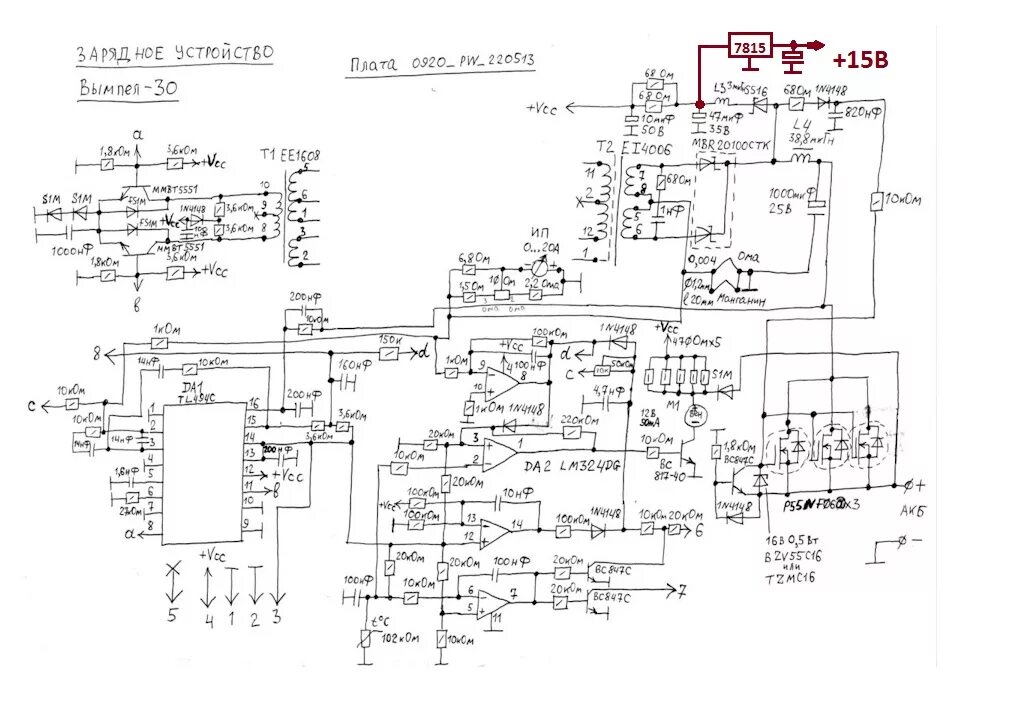 ЗАРЯДНОЕ УСТРОЙСТВО
Вымпел-30
Плата 0920_PW_220513
7815
+15В
68 Ом
68 Ом
+Vcc
10мкФ
50В
47мкФ
35В
L3
SS16
68Ом
1N4148
820нФ
L4
38,8мкГн
MBR20100CTK
a
1,8кОм
3,6кОм
+Vcc
MMBT5551
S1M
S1M
1N4148
+Vcc
3,6кОм
3,6кОм
1000нФ
MMBT5551
1,8кОм
3,6кОм
+Vcc
в
T1 EE1608
10
9
8
5
6
1
3
2
T2 EI4006
11
2
12
1
7
8
5
6
68Ом
1нФ
1000мкФ
25В
10кОм
0,004 Ома
Ф1,2мм
l 20мм
Манганин
ИП
0...20А
6,8Ом
1,5Ом
10 Ом
2,2Ома
200нФ
10кОм
1кОм
8
150к
d
14нФ
10кОм
160нФ
10кОм
с
10кОм
14нФ
14нФ
DA1
TL494C
1
2
3
4
5
6
7
8
16
15
14
13
12
11
10
9
200нФ
3,6кОм
3,6кОм
200нФ
+Vcc
в
1,6нФ
27кОм
a
+Vcc
5
4
1
2
3
1кОм
+Vcc
4
100кОм
100нФ
9
10
8
1кОм
1N4148
d
с
10к
50кОм
4,7нФ
1N4148
220кОм
20кОм
10кОм
3
2
1
DA2 LM324DG
20кОм
100кОм
+Vcc
100кОм
10нФ
13
12
14
100кОм
1N4148
10кОм
20кОм
6
20кОм
20кОм
100нФ
10кОм
100нФ
6
5
7
11
20кОм
20кОм
BC847C
BC847C
7
t°C
102кОм
10кОм
+Vcc
470Омх5
S1M
M1
Вен
12В
50мА
10кОм
BC
817-40
1,8кОм
BC847C
1N4148
16В 0,5Вт
BZV55C16
или
TZMC16
P55NF06 х3
+
АКБ
-